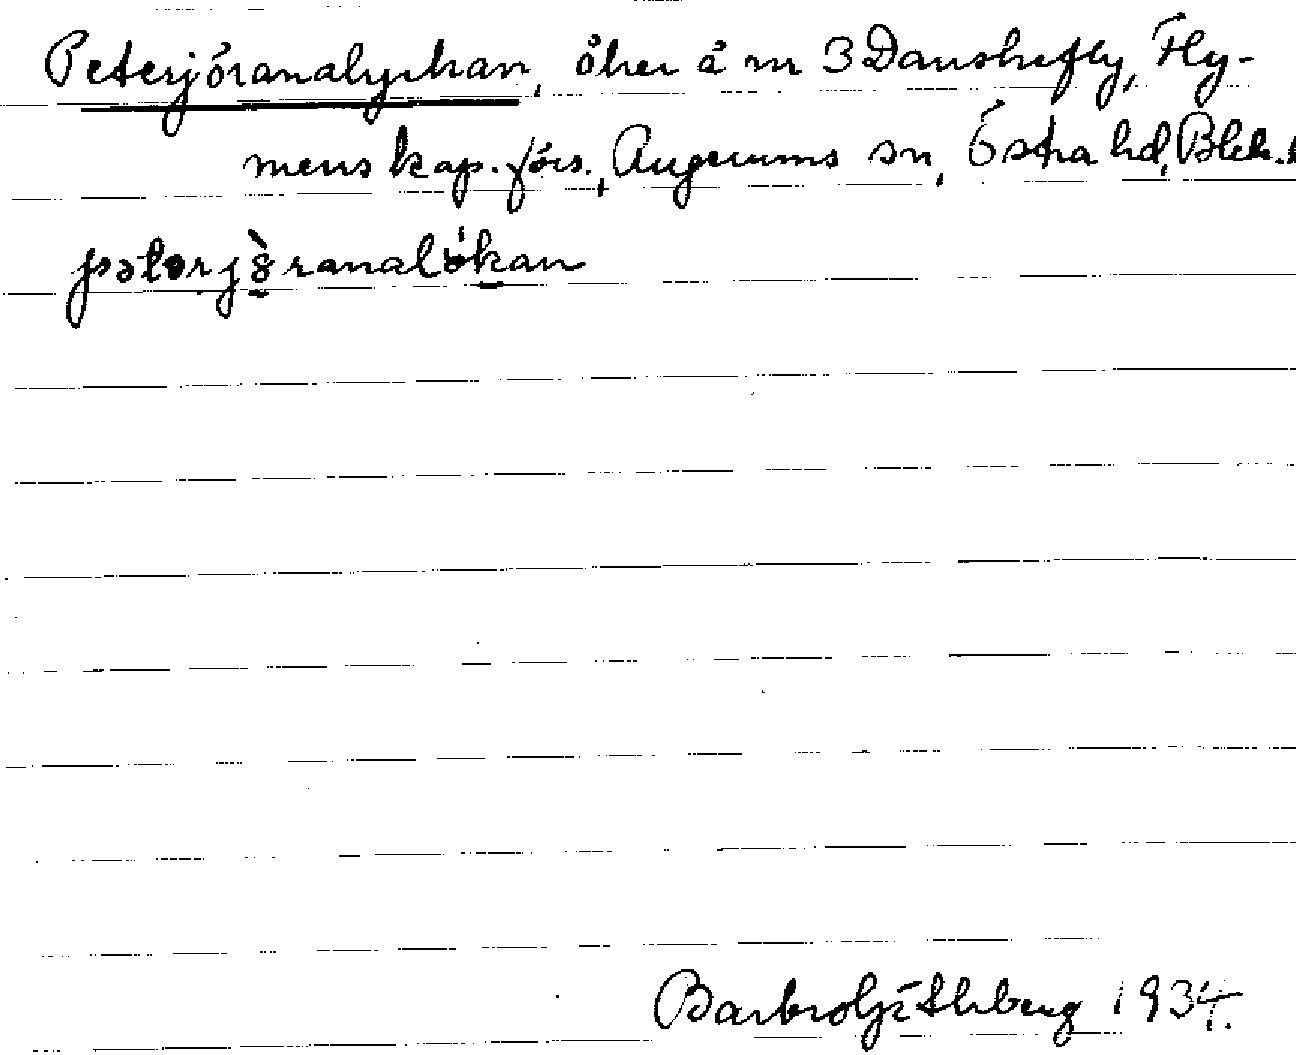 Petersjöranalyckan, åker å nr 3 Danskefly, Fly-
mens kap.förs., Augerums sn, Östra hd, Blek.
petərjöranalỳkan
Barbro 1934.